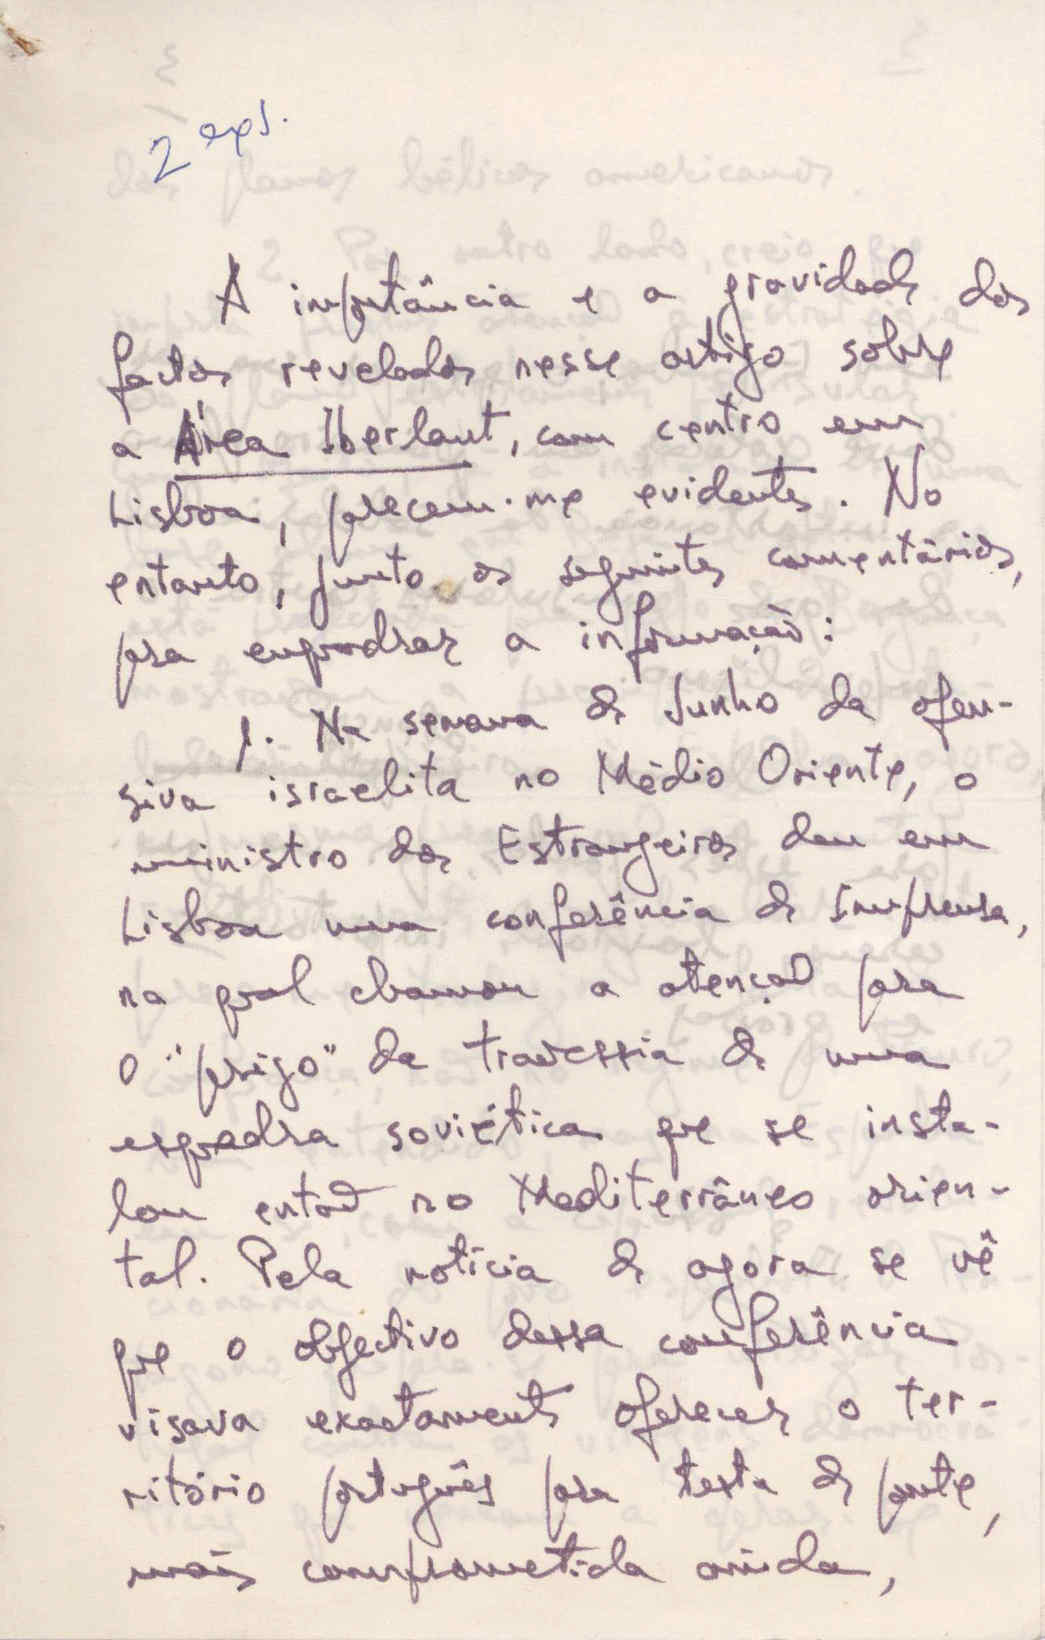 2 exps.
A importância e a gravidade dos
factos revelados nesse artigo sobre
a Área Iberlant, com centro em
Lisboa, parecem-me evidentes. No
entanto, junto os seguintes comentários,
para enquadrar a informação:
1. Na semana de Junho da ofen-
siva israelita no Médio Oriente, o
ministro dos Estrangeiros deu em
Lisboa uma conferência de Imprensa,
na qual chamou a atenção para
o "perigo" da travessia de uma
esquadra soviética que se insta-
lou então no Mediterrâneo orien-
tal. Pela notícia de agora se vê
que o objectivo dessa conferência
visava exactamente oferecer o ter-
ritório português para testa de ponte,
mais comprometida ainda,